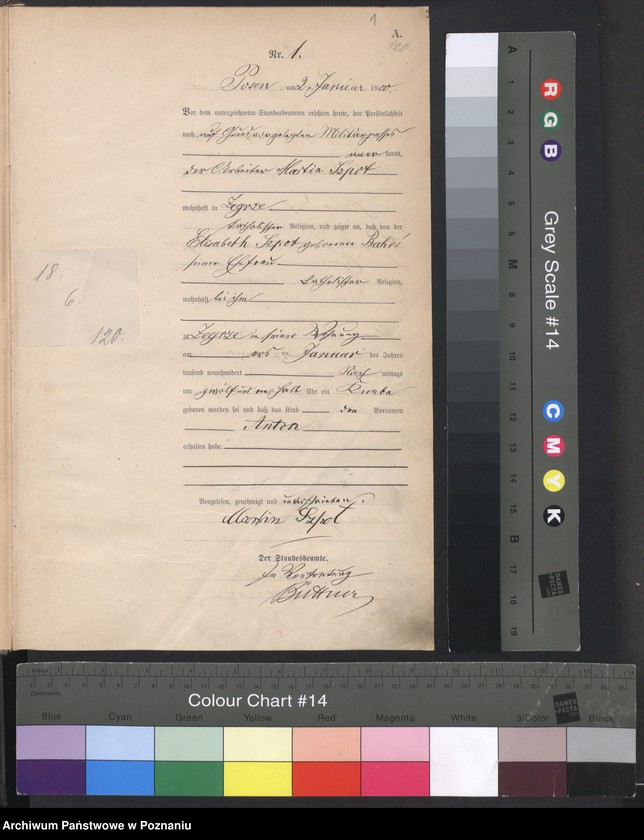 1
A.
120
Nr. 1.
Posen am 2. Januar 1900.
Vor dem unterzeichneten Standesbeamten erschien heute, der Persönlichkeit
nach auf Grund vorgelegten Militärpasses
kannt,
der Arbeiter Martin Szpot
wohnhaft in Zegrze
katholischer Religion, und zeigte an, daß von der
Elisabeth Szpot geborenen
seiner Ehefrau
katholischer Religion,
wohnhaft bei ihm
zu Zegrze in seiner Wohnung
am ersten Januar des Jahres
tausend neunhundert Nach mittags
um zwölf und ein halb Uhr ein Knabe
geboren worden sei und daß das Kind den Vornamen
Anton
erhalten habe.
Vorgelesen, genehmigt und unterschrieben.
Martin Szpot
Der Standesbeamte.
In Vertretung
Büttner
18.
6.
120.
Grey Scale #14
R
G
B
C
M
Y
K
A
1
2
3
4
5
6
M
8
9
10
11
12
13
14
15
B
17
18
19
DANES PICTA
Colour Chart #14
Centimetres
Blue
Cyan
Green
Yellow
Red
Magenta
White
3/Color
Black
DANES PICTA
Archiwum Państwowe w Poznaniu